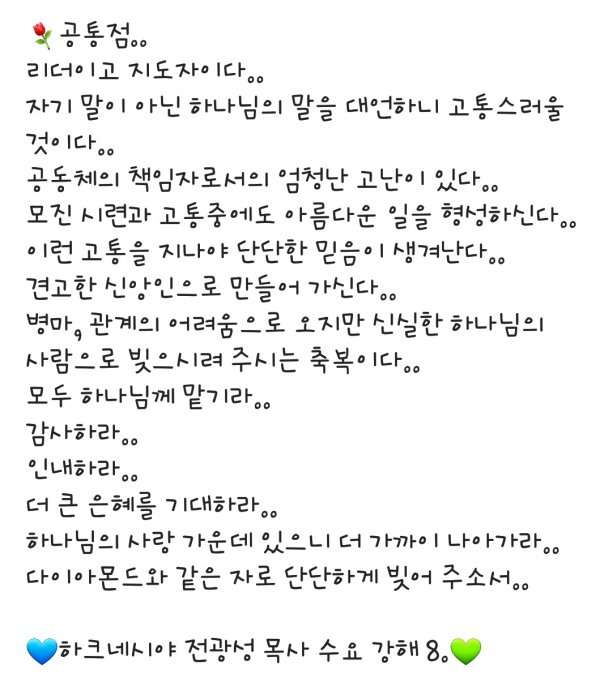 🌹공통점。。
리더이고 지도자이다。。
자기 말이 아닌 하나님의 말을 대언하니 고통스러울
것이다。。
공동체의 책임자로서의 엄청난 고난이 있다。。
모진 시련과 고통중에도 아름다운 일을 형성하신다。。
이런 고통을 지나야 단단한 믿음이 생겨난다。。
견고한 신앙인으로 만들어 가신다。。
병마, 관계의 어려움으로 오지만 신실한 하나님의
사람으로 빚으시려 주시는 축복이다。。
모두 하나님께 맡기라。。
감사하라。。
인내하라。。
더 큰 은혜를 기대하라。。
하나님의 사랑 가운데 있으니 더 가까이 나아가라。。
다이아몬드와 같은 자로 단단하게 빚어 주소서。。
💙하크네시야 전광성 목사 수요 강해 8。💚